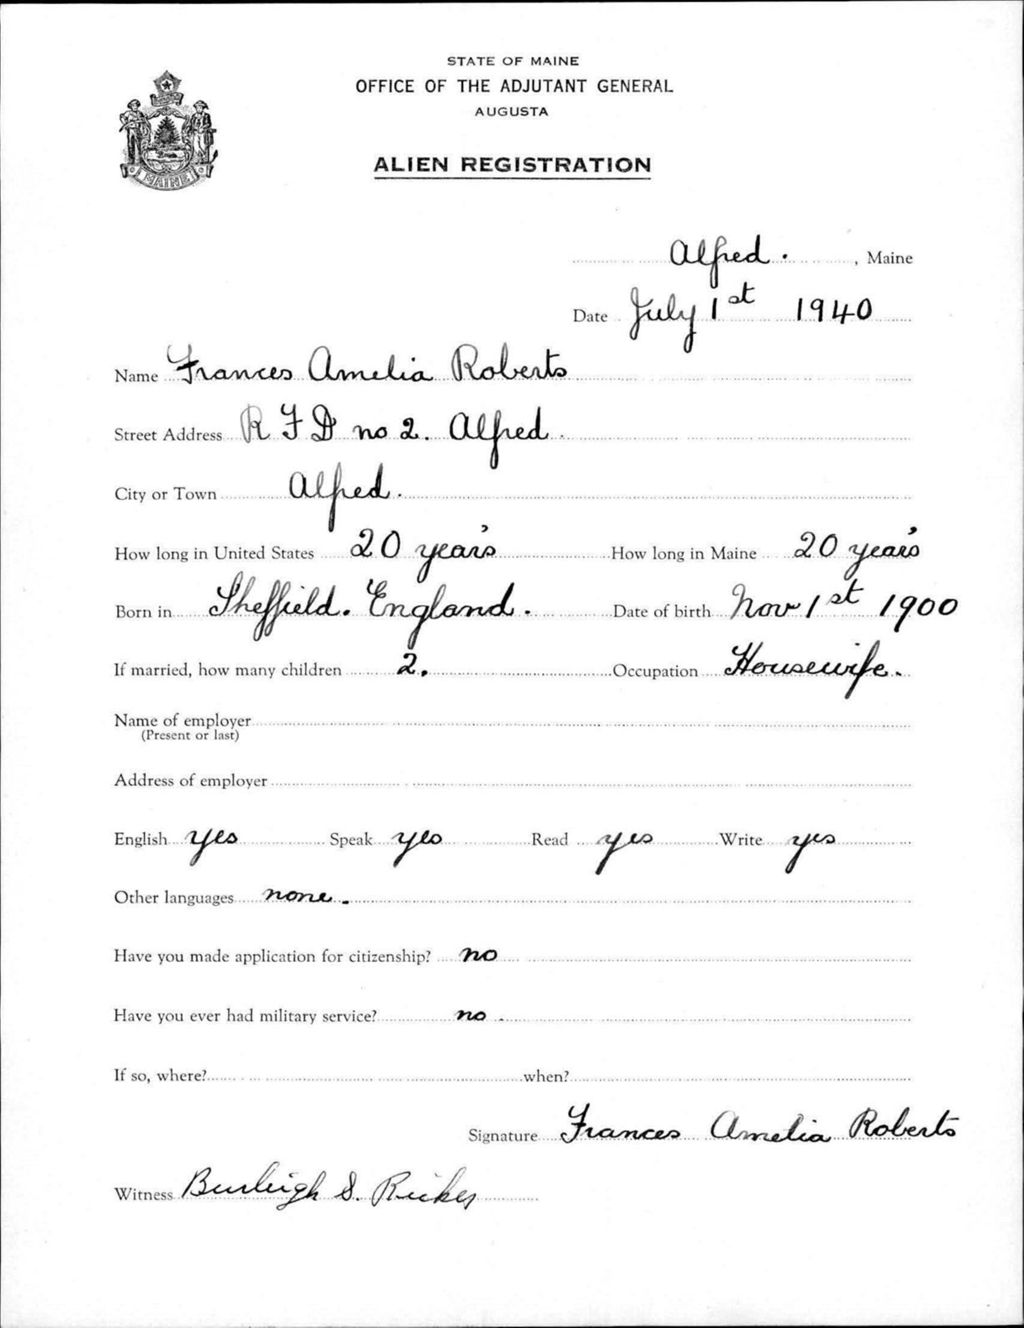 STATE OF MAINE
OFFICE OF THE ADJUTANT GENERAL
AUGUSTA
ALIEN REGISTRATION
MAINE
Alfred. , Maine
Date July 1st 1940
Name Frances Amelia Roberts
Street Address R F D no 2. Alfred.
City or Town Alfred.
How long in United States 20 years How long in Maine 20 years
Born in Sheffield. England. Date of birth Nov 1st 1900
If married, how many children 2. Occupation Housewife.
Name of employer
(Present or last)
Address of employer
English yes Speak yes Read yes Write yes
Other languages none.
Have you made application for citizenship? no
Have you ever had military service? no.
If so, where? when?
Signature Frances Amelia Roberts
Witness Burleigh S.